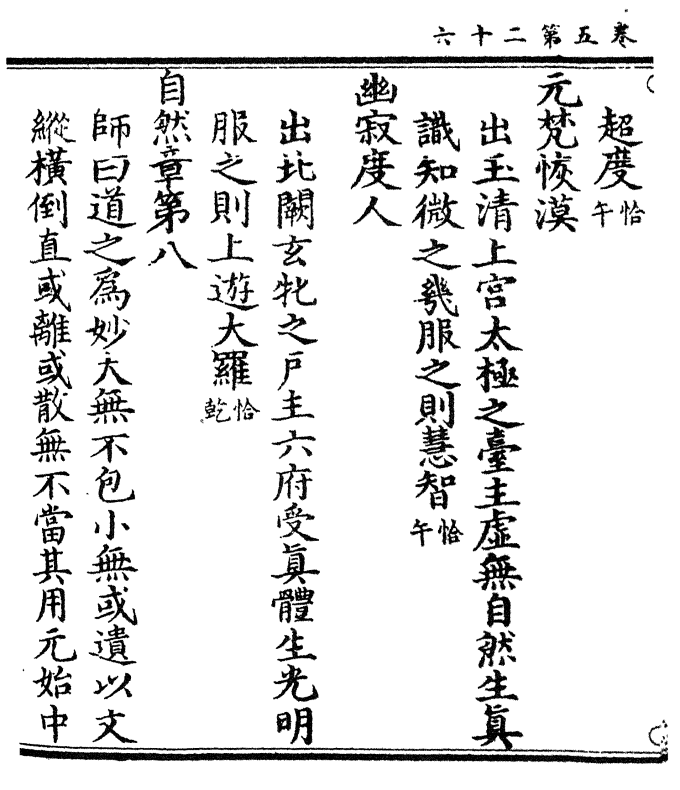 卷五第二十六
超度恰午
元梵恢漠
出玉清上宮太極之臺主虛無自然生真
識知微之幾服之則慧智恰午
幽寂度人
出北闕玄牝之戶主六府受真體生光明
服之則上遊大羅恰乾
自然章第八
師曰道之為妙大無不包小無或遺以文
縱橫倒直或離或散無不當其用元始中